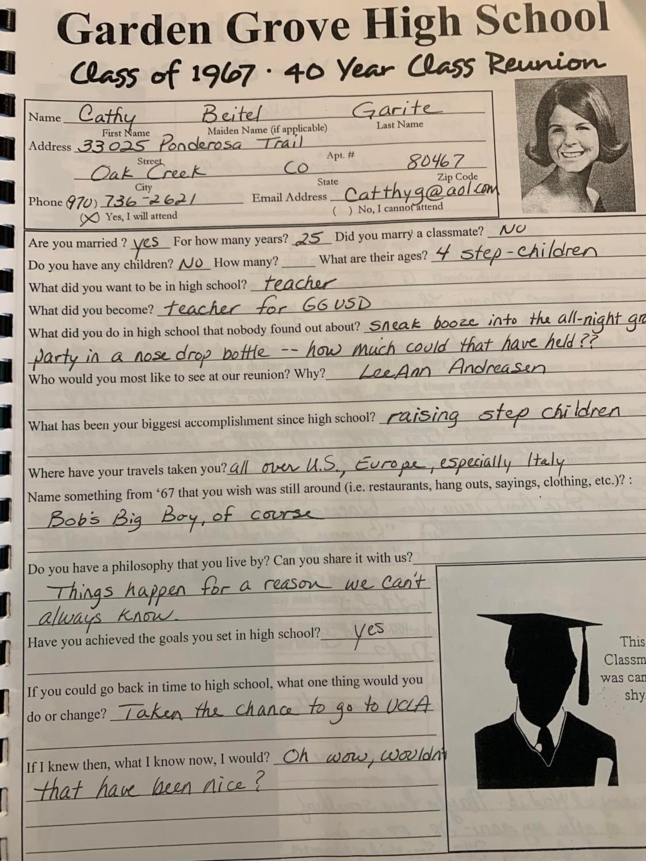 Garden Grove High School
Class of 1967 · 40 Year Class Reunion
Name Cathy Beitel Garite
First Name Maiden Name (if applicable) Last Name
Address 33025 Ponderosa Trail
Street Apt. #
Oak Creek CO 80467
City State Zip Code
Phone (970) 736-2621 Email Address Catthyg@aol.com
(X) Yes, I will attend ( ) No, I cannot attend
Are you married? yes For how many years? 25 Did you marry a classmate? NO
Do you have any children? NO How many? What are their ages? 4 step-children
What did you want to be in high school? teacher
What did you become? teacher for GGUSD
What did you do in high school that nobody found out about? sneak booze into the all-night gr
party in a nose drop bottle -- how much could that have held??
Who would you most like to see at our reunion? Why? LeeAnn Andreasen
What has been your biggest accomplishment since high school? raising step children
Where have your travels taken you? all over U.S., Europe, especially Italy
Name something from '67 that you wish was still around (i.e. restaurants, hang outs, sayings, clothing, etc.)? :
Bob's Big Boy, of course
Do you have a philosophy that you live by? Can you share it with us?
Things happen for a reason we can't
always know.
Have you achieved the goals you set in high school? yes
If you could go back in time to high school, what one thing would you
do or change? Taken the chance to go to UCLA
If I knew then, what I know now, I would? Oh wow, wouldn't
that have been nice?
This
Classm
was can
shy